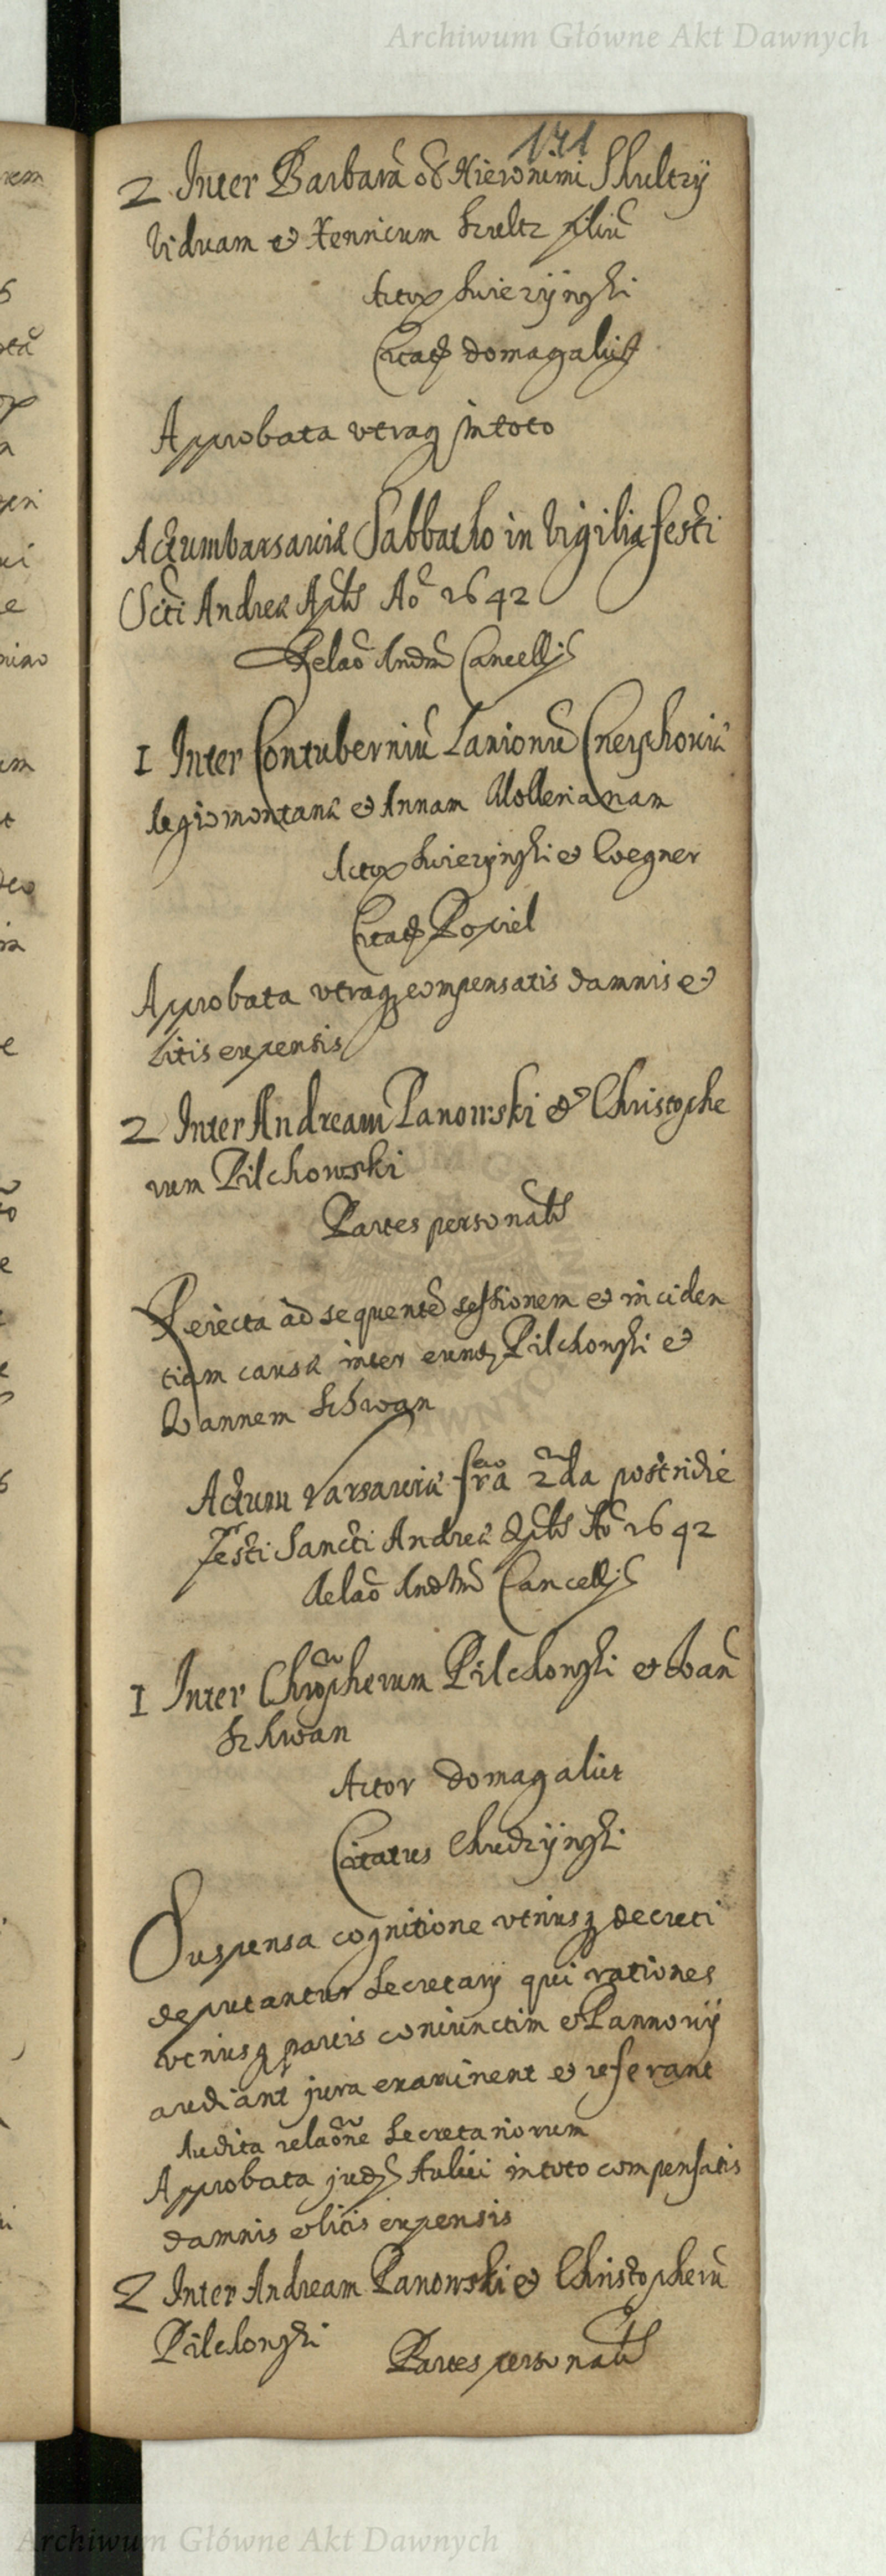 Archiwum Główne Akt Dawnych
171
2 Inter Barbarā od Hieronimi Shultzÿ
Viduam et Henricum Szultz filiū
Actor Swierzÿnski
Citatus Domagalicz
Approbata vtraq in toto
Actum Varsaviæ Sabbatho in Vigilia festi
Scti Andreæ Aplī Ao 1642
Relaō Cancellÿ
1 Inter Contuberniū Lanionū Cneiphoviæ
Regiomontanæ et Annam Mollerianam
Actor Swierzynski et Wegner
Citatus Popiel
Approbata vtraq compensatis damnis et
litis expensis
2 Inter Andream Panowski et Christophe
rum Pilchowski
Partes personalr
Reiecta ad sequentē sessionem et inciden
tiam causæ inter eund Pilchowski et
Ioannem Schwan
Actum Varsaviæ fria 2da postridie
Festi Sancti Andreæ Aplī Ao 1642
Relaō Cancellÿ
1 Inter Chrōpherum Pilchowski et Ioañ
Schwan
Actor Domagalicz
Citatus Chudzÿnski
Suspensa cognitione vtriusq decreti
deputantur Secretarÿ qui rationes
vtriusq partis coniunctim et Pannowÿ
audiant jura examinent et referant
Audita relaōne Secretariorum
Approbata Aulici in toto compensatis
damnis et litis expensis
2 Inter Andream Panowski et Christopherū
Pilchowski Partes personalr
Archiwum Główne Akt Dawnych